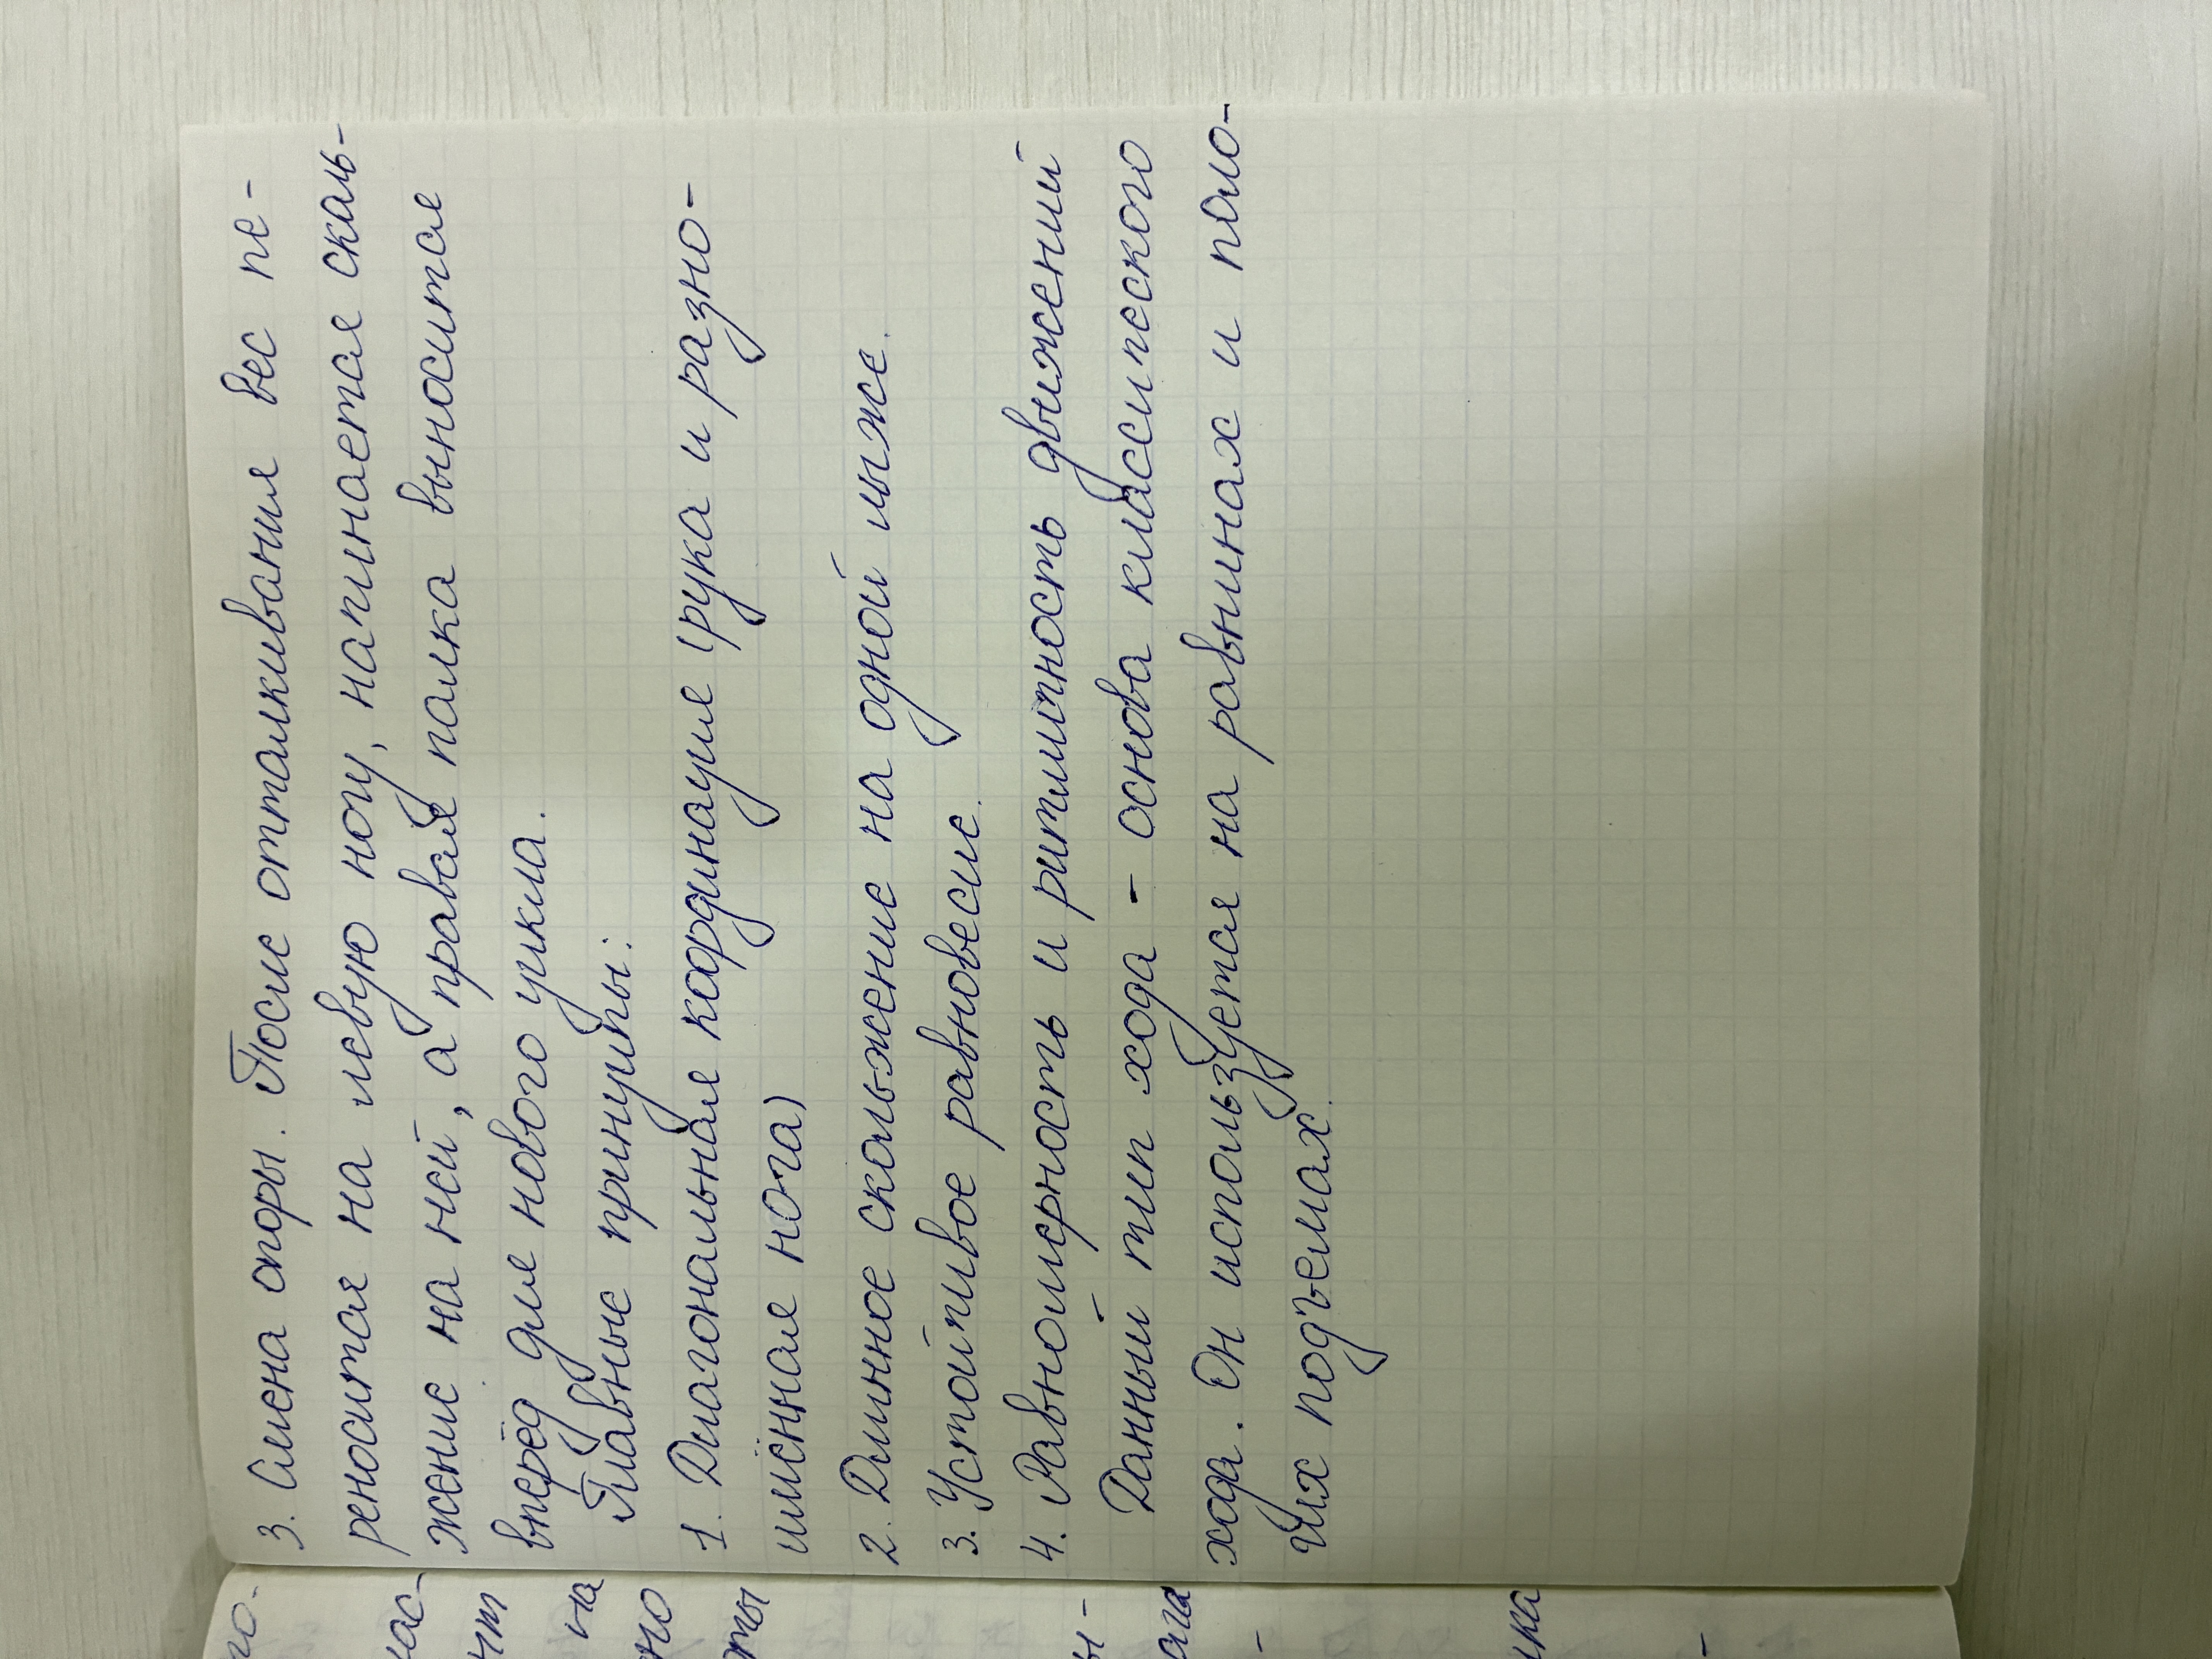 3. Смена опоры. После отталкивания вес пе-
реносится на левую ногу, начинается сколь-
жение на ней, а правая палка выносится
вперёд для нового цикла.
Главные принципы:
1. Диагональная кординация (рука и разно-
имённая нога)
2. Длинное скольжение на одной лыже.
3. Устойчивое равновесие.
4. Равномерность и ритмичность движений
Данный тип хода - основа классического
хода. Он используется на равнинах и поло-
гих подъемах.
го-
нас-
на
но
ты
ы-
ога
-
лка
-